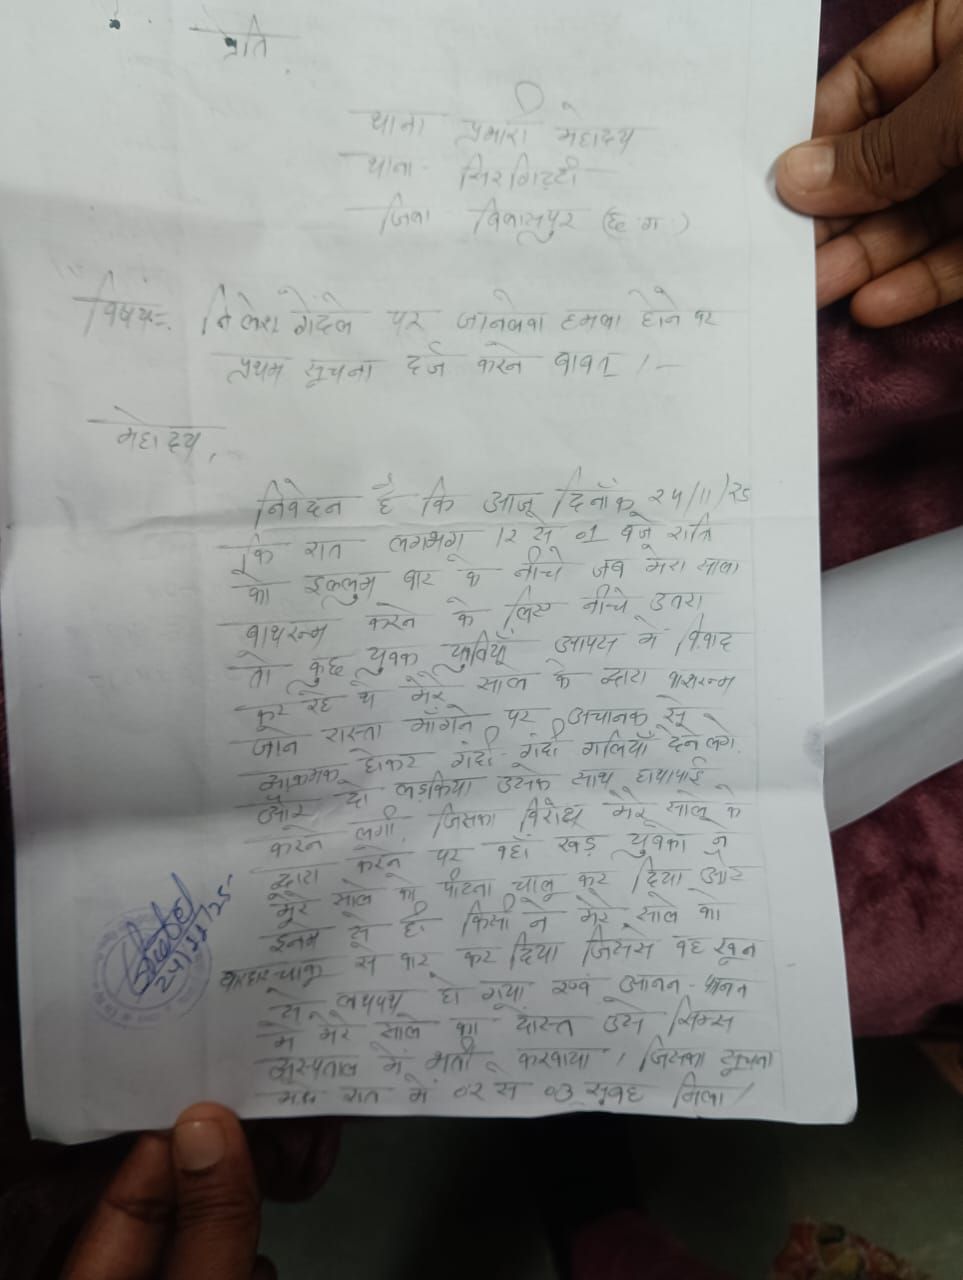 प्रति
थाना प्रभारी महोदय
थाना - सिरगिट्टी
जिला बिलासपुर (छ.ग.)
विषय:- निलेश गेंदले पर जानलेवा हमला होने पर
प्रथम सूचना दर्ज करने बाबत् ।-
महोदय,
निवेदन है कि आज दिनाँक २४/११/२५
कि रात लगभग १२ से ०१ बजे रात्रि
को इकलुम बार के नीचे जब मेरा साला
बाथरूम करने के लिए नीचे उतरा
तो कुछ युवक युवतियाँ आपस में विवाद
कर रहे थे मेरे साले के द्वारा बाथरूम
जाने रास्ता माँगने पर अचानक से
आक्रमक होकर गंदी-गंदी गालियाँ देने लगे
और दो लड़किया उसके साथ हाथापाई
करने लगी जिसका विरोध मेरे साले के
द्वारा करने पर वहाँ खड़े युवको ने
मेरे साले को पीटना चालू कर दिया और
इनमे से ही किसी ने मेरे साले को
धारदार चाकू से वार कर दिया जिससे वह खून
से लथपथ हो गया एवं आनन-फानन
मे मेरे साले का दोस्त उसे सिम्स
अस्पताल में भर्ती करवाया । जिसका सूचना
मुझे रात में ०२ से ०३ सुबह मिला ।
24/11/25